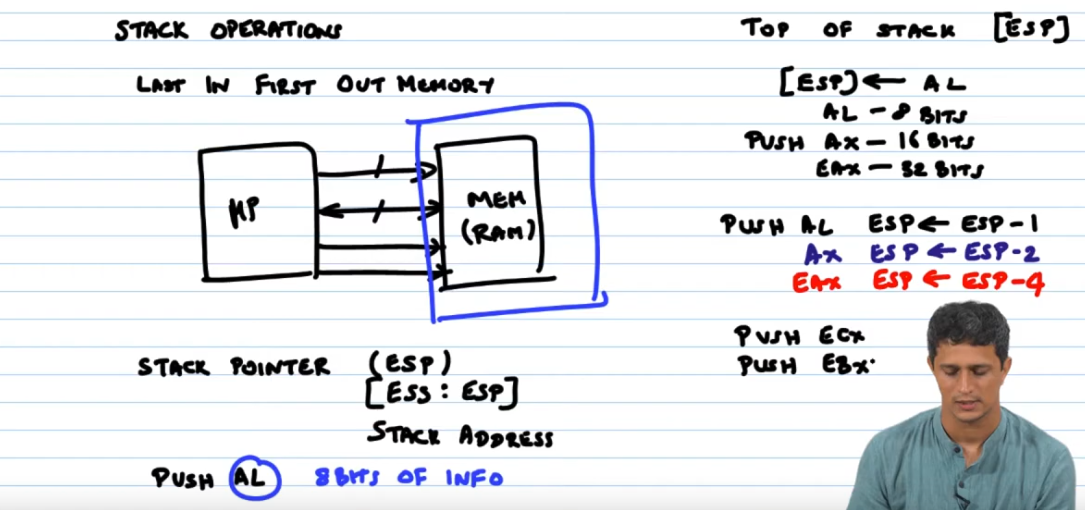 STACK OPERATIONS
LAST IN FIRST OUT MEMORY
MP
MEM
(RAM)
STACK POINTER (ESP)
[ESS : ESP]
STACK ADDRESS
PUSH AL 8 BITS OF INFO
TOP OF STACK [ESP]
[ESP] ← AL
AL - 8 BITS
PUSH AX - 16 BITS
EAX - 32 BITS
PUSH AL ESP ← ESP - 1
AX ESP ← ESP - 2
EAX ESP ← ESP - 4
PUSH ECX
PUSH EBX